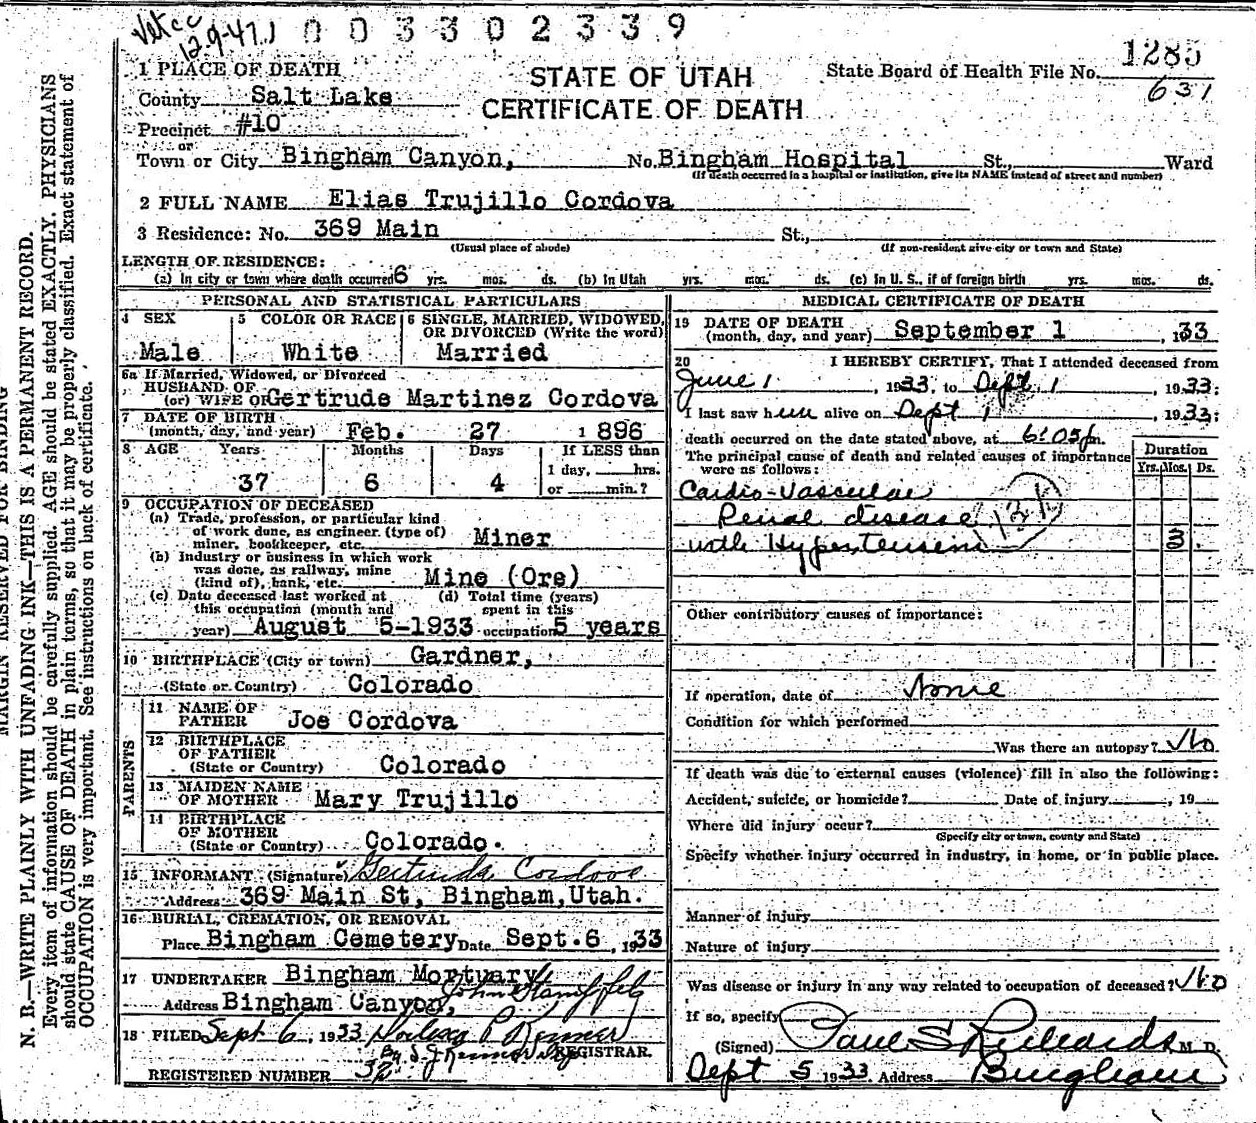 Vet cc
12-9-47 J
0 0 3 3 0 2 3 3 9
1285
631
STATE OF UTAH
CERTIFICATE OF DEATH
State Board of Health File No.
1 PLACE OF DEATH
County Salt Lake
Precinct #10
or
Town or City Bingham Canyon, No. Bingham Hospital St., Ward
(If death occurred in a hospital or institution, give its NAME instead of street and number)
2 FULL NAME Elias Trujillo Cordova
3 Residence: No. 369 Main St.,
(Usual place of abode) (If non-resident give city or town and State)
LENGTH OF RESIDENCE:
(a) In city or town where death occurred 6 yrs. mos. ds. (b) In Utah yrs. mos. ds. (c) In U. S., if of foreign birth yrs. mos. ds.
PERSONAL AND STATISTICAL PARTICULARS
4 SEX
Male
5 COLOR OR RACE
White
6 SINGLE, MARRIED, WIDOWED,
OR DIVORCED (Write the word)
Married
6a If Married, Widowed, or Divorced
HUSBAND OF
(or) WIFE OF Gertrude Martinez Cordova
7 DATE OF BIRTH
(month, day, and year) Feb. 27 1896
8 AGE Years Months Days If LESS than
1 day, hrs.
or min.?
37 6 4
9 OCCUPATION OF DECEASED
(a) Trade, profession, or particular kind
of work done, as engineer, (type of)
miner, bookkeeper, etc. Miner
(b) Industry or business in which work
was done, as railway, mine
(kind of), bank, etc. Mine (Ore)
(c) Date deceased last worked at
this occupation (month and
year) August 5-1933
(d) Total time (years)
spent in this
occupation 5 years
10 BIRTHPLACE (City or town) Gardner,
(State or Country) Colorado
PARENTS
11 NAME OF
FATHER Joe Cordova
12 BIRTHPLACE
OF FATHER
(State or Country) Colorado
13 MAIDEN NAME
OF MOTHER Mary Trujillo
14 BIRTHPLACE
OF MOTHER
(State or Country) Colorado.
15 INFORMANT (Signature) Gertrude Cordova
Address 369 Main St, Bingham, Utah.
16 BURIAL, CREMATION, OR REMOVAL
Place Bingham Cemetery Date Sept. 6, 1933
17 UNDERTAKER Bingham Mortuary
Address Bingham Canyon,
18 FILED Sept 6, 1933
REGISTRAR.
REGISTERED NUMBER 32
MEDICAL CERTIFICATE OF DEATH
19 DATE OF DEATH
(month, day, and year) September 1, 1933
20 I HEREBY CERTIFY, That I attended deceased from
June 1, 1933, to Sept. 1, 1933;
I last saw him alive on Sept 1, 1933;
death occurred on the date stated above, at 6:05 p m.
The principal cause of death and related causes of importance
were as follows:
Duration
Yrs. Mos. Ds.
Cardio-Vascular
Renal disease
with Hypertension 3
Other contributory causes of importance:
If operation, date of None
Condition for which performed
Was there an autopsy? No
If death was due to external causes (violence) fill in also the following:
Accident, suicide, or homicide? Date of injury , 19
Where did injury occur?
(Specify city or town, county and State)
Specify whether injury occurred in industry, in home, or in public place.
Manner of injury
Nature of injury
Was disease or injury in any way related to occupation of deceased? No
If so, specify
(Signed) Paul S Richards M. D.
Sept 5 1933 Address Bingham
MARGIN RESERVED FOR BINDING
N. B.—WRITE PLAINLY WITH UNFADING INK—THIS IS A PERMANENT RECORD.
Every item of information should be carefully supplied. AGE should be stated EXACTLY. PHYSICIANS
should state CAUSE OF DEATH in plain terms, so that it may be properly classified. Exact statement of
OCCUPATION is very important. See instructions on back of certificate.